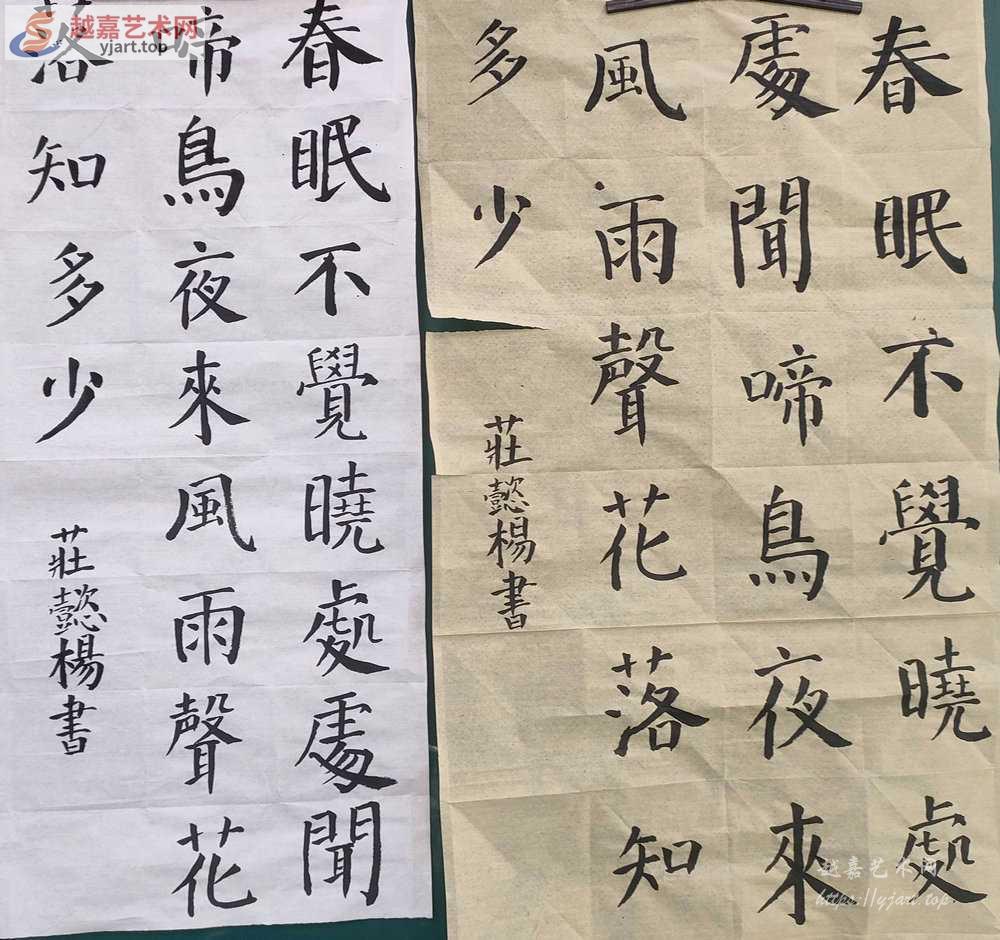 越嘉艺术网
yjart.top
春眠不覺曉處處聞
啼鳥夜來風雨聲花
落知多少
莊懿楊書
春眠不覺曉處
處聞啼鳥夜來
風雨聲花落知
多少
莊懿楊書
越嘉艺术网
https://yjart.top